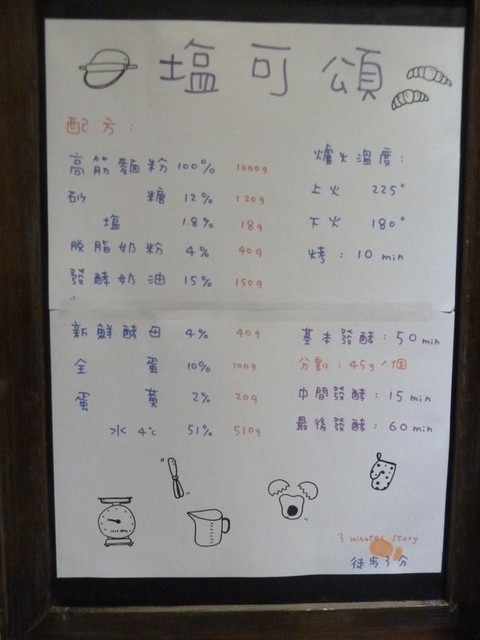 塩可頌
配方:
高筋麵粉 100% 1000g
砂糖 12% 120g
塩 1.8% 18g
脫脂奶粉 4% 40g
發酵奶油 15% 150g
新鮮酵母 4% 40g
全蛋 10% 100g
蛋黃 2% 20g
水 4℃ 51% 510g
爐火溫度:
上火 225°
下火 180°
烤: 10 min
基本發酵: 50 min
分割: 45g/個
中間發酵: 15 min
最後發酵: 60 min
3 minutes story
徒步3分